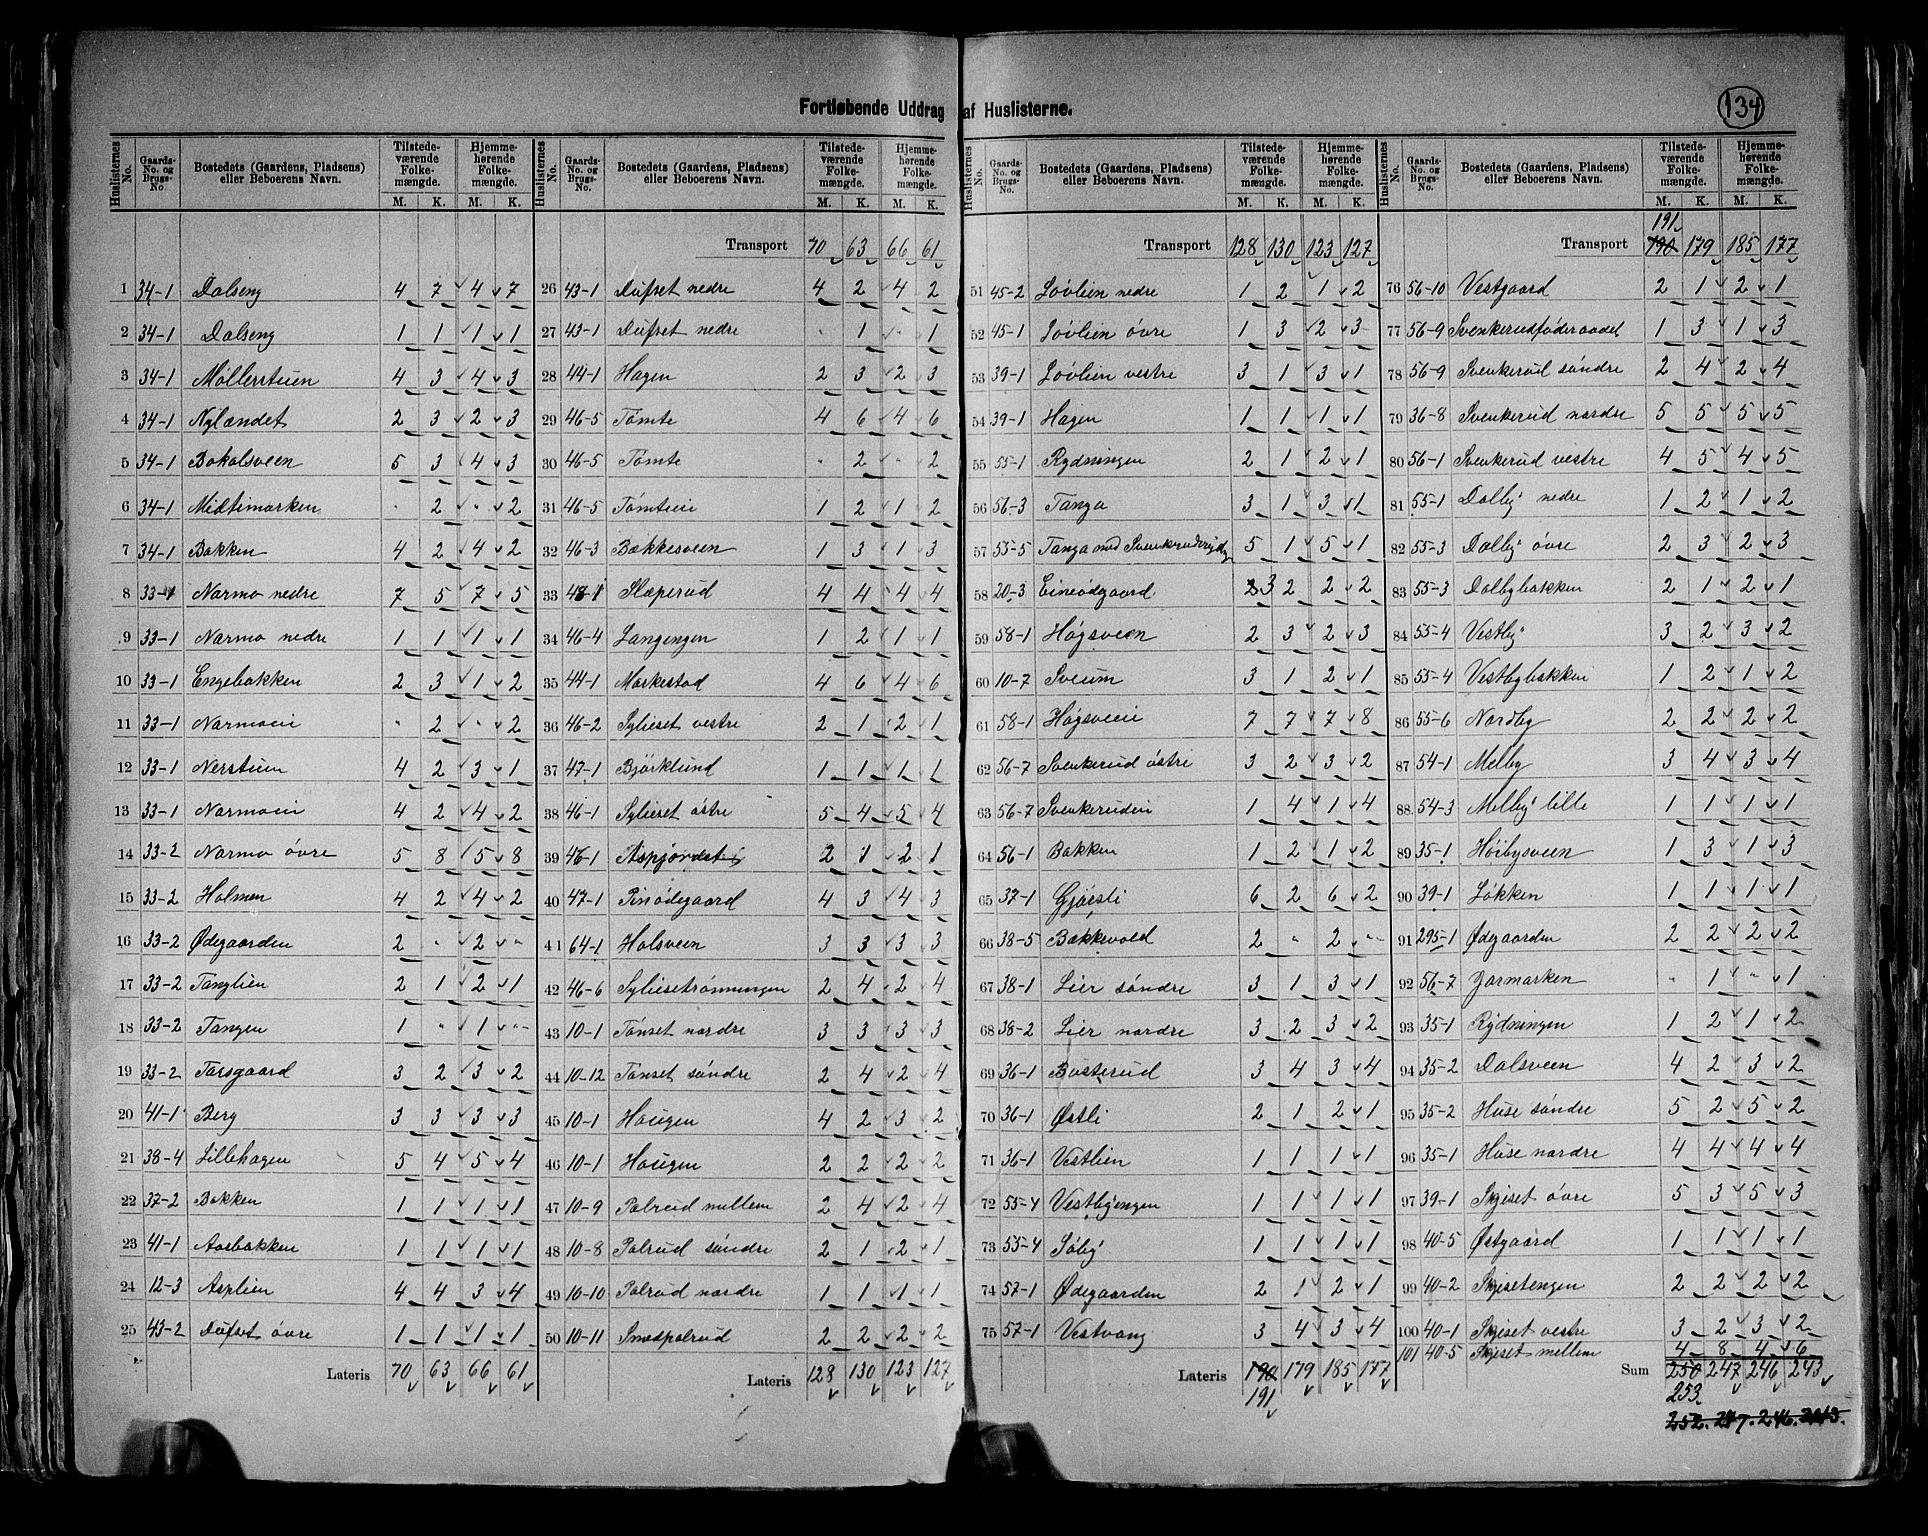 Fortløbende Uddrag af Huslisterne.
134
Huslisternes No. Gaards-No. og Brugs-No. Bostedets (Gaardens, Pladsens) eller Beboerens Navn. Tilstedeværende Folkemængde. M. K. Hjemmehørende Folkemængde. M. K.
1 34-1 Dalseng 4 7 4 7
2 34-1 Dalseng 1 1 1 1
3 34-1 Møllerstuen 4 3 4 3
4 34-1 Nylændet 2 3 2 3
5 34-1 Bakalsveen 5 3 4 3
6 34-1 Midtimarken " 2 " 2
7 34-1 Bakken 4 2 4 2
8 33-1 Narmo nedre 7 5 7 5
9 33-1 Narmo nedre 1 1 1 1
10 33-1 Engebakken 2 3 1 2
11 33-1 Narmoen " 2 " 2
12 33-1 Nerstuen 4 2 3 1
13 33-1 Narmoen 4 2 4 2
14 33-2 Narmo øvre 5 8 5 8
15 33-2 Holmen 4 2 4 2
16 33-2 Ødegaarden 2 " 2 "
17 33-2 Tanglien 2 1 2 1
18 33-2 Tangen 1 " 1 "
19 33-2 Tarsgaard 3 2 3 2
20 41-1 Berg 3 3 3 3
21 38-4 Lillehagen 5 4 5 4
22 37-2 Bakken 1 1 1 1
23 41-1 Aasbakken 1 1 1 1
24 12-3 Asplien 4 4 3 4
25 43-2 Dufset øvre 1 1 1 1
Lateris 70 63 66 61
Huslisternes No. Gaards-No. og Brugs-No. Bostedets (Gaardens, Pladsens) eller Beboerens Navn. Tilstedeværende Folkemængde. M. K. Hjemmehørende Folkemængde. M. K.
Transport 70 63 66 61
26 43-1 Dufset nedre 4 2 4 2
27 43-1 Dufset nedre " 1 " 1
28 44-1 Hagen 2 3 2 3
29 46-5 Tømte 4 6 4 6
30 46-5 Tømte " 2 " 2
31 46-5 Tømteie 1 2 1 2
32 46-3 Bækkesveen 1 3 1 3
33 48-1 Slæperud 4 4 4 4
34 46-4 Langengen 1 2 1 1
35 44-1 Markestad 4 6 4 6
36 46-2 Syliset vestre 2 1 2 1
37 47-1 Bjørklund 1 1 1 1
38 46-1 Syliset østre 5 4 5 4
39 46-1 Aspjordet 2 1 2 1
40 47-1 Pinødegaard 4 3 4 3
41 64-1 Holsveen 3 3 3 3
42 46-6 Sylisetrønningen 2 4 2 4
43 10-1 Tønset nordre 3 3 3 3
44 10-12 Tønset søndre 2 4 2 4
45 10-1 Haugen 4 2 3 2
46 10-1 Haugen 2 2 2 2
47 10-9 Palrud mellem 2 4 2 4
48 10-8 Palrud søndre 2 1 2 1
49 10-10 Palrud nordre 1 1 1 1
50 10-11 Smedpalrud 2 2 2 2
Lateris 128 130 123 127
Huslisternes No. Gaards-No. og Brugs-No. Bostedets (Gaardens, Pladsens) eller Beboerens Navn. Tilstedeværende Folkemængde. M. K. Hjemmehørende Folkemængde. M. K.
Transport 128 130 123 127
51 45-2 Løvlien nedre 1 2 1 2
52 45-1 Løvlien øvre 1 3 2 3
53 39-1 Løvlien vestre 3 1 3 1
54 39-1 Hagen 1 1 1 1
55 55-1 Rydningen 2 1 2 1
56 56-3 Tanga 3 1 3 1
57 55-5 Tanga med 5 1 5 1
58 20-3 Einødgaard 3 2 2 2
59 58-1 Høgsveen 2 3 2 3
60 10-7 Sveum 3 1 2 1
61 58-1 Høgsveen 7 7 7 8
62 56-7 Svenkerud østre 3 2 3 2
63 56-7 Svenkeruden 1 4 1 4
64 56-1 Bakken 1 2 1 2
65 37-1 Gjøesli 6 2 6 2
66 38-5 Bækkevold 2 " 2 "
67 38-1 Lier søndre 3 1 3 1
68 38-2 Lier nordre 3 2 3 2
69 36-1 Busterud 3 4 3 4
70 36-1 Østli 2 1 2 1
71 36-1 Vestlien 1 1 1 1
72 55-4 Vestbyengen 1 1 1 1
73 55-4 Søby 1 1 1 1
74 57-1 Ødegaarden 2 1 2 1
75 57-1 Vestvang 3 4 3 4
Lateris 190 179 185 177
191
Huslisternes No. Gaards-No. og Brugs-No. Bostedets (Gaardens, Pladsens) eller Beboerens Navn. Tilstedeværende Folkemængde. M. K. Hjemmehørende Folkemængde. M. K.
191
Transport 190 179 185 177
76 56-10 Vestgaard 2 1 2 1
77 56-9 Svenkerudføderaadet 1 3 1 3
78 56-9 Svenkerud søndre 2 4 2 4
79 36-8 Svenkerud nordre 5 5 5 5
80 56-1 Svenkerud vestre 4 5 4 5
81 55-1 Dalby nedre 1 2 1 2
82 55-3 Dalby øvre 2 3 2 3
83 55-3 Dalbybakken 2 1 2 1
84 55-4 Vestby 3 2 3 2
85 55-4 Vestbybakken 1 2 1 2
86 55-6 Nordby 2 2 2 2
87 54-1 Melby 3 4 3 4
88 54-3 Melby lille 1 1 1 1
89 35-1 Høibysveen 1 3 1 3
90 39-1 Løkken 1 1 1 1
91 295-1 Ødegaarden 2 2 2 2
92 56-7 Jarmarken " 1 " 1
93 35-1 Rydningen 1 2 1 2
94 35-2 Dalsveen 4 2 3 2
95 35-2 Huse søndre 5 2 5 2
96 35-1 Huse nordre 4 4 4 4
97 39-1 Skjset øvre 5 3 5 3
98 40-5 Østgaard 1 1 1 1
99 40-2 Skjsetengen 2 2 2 2
100 40-1 Skjset vestre 3 2 3 2
101 40-5 Skjset mellem 4 8 4 6
Sum 250 247 246 243
253
252. 247. 246. 243.